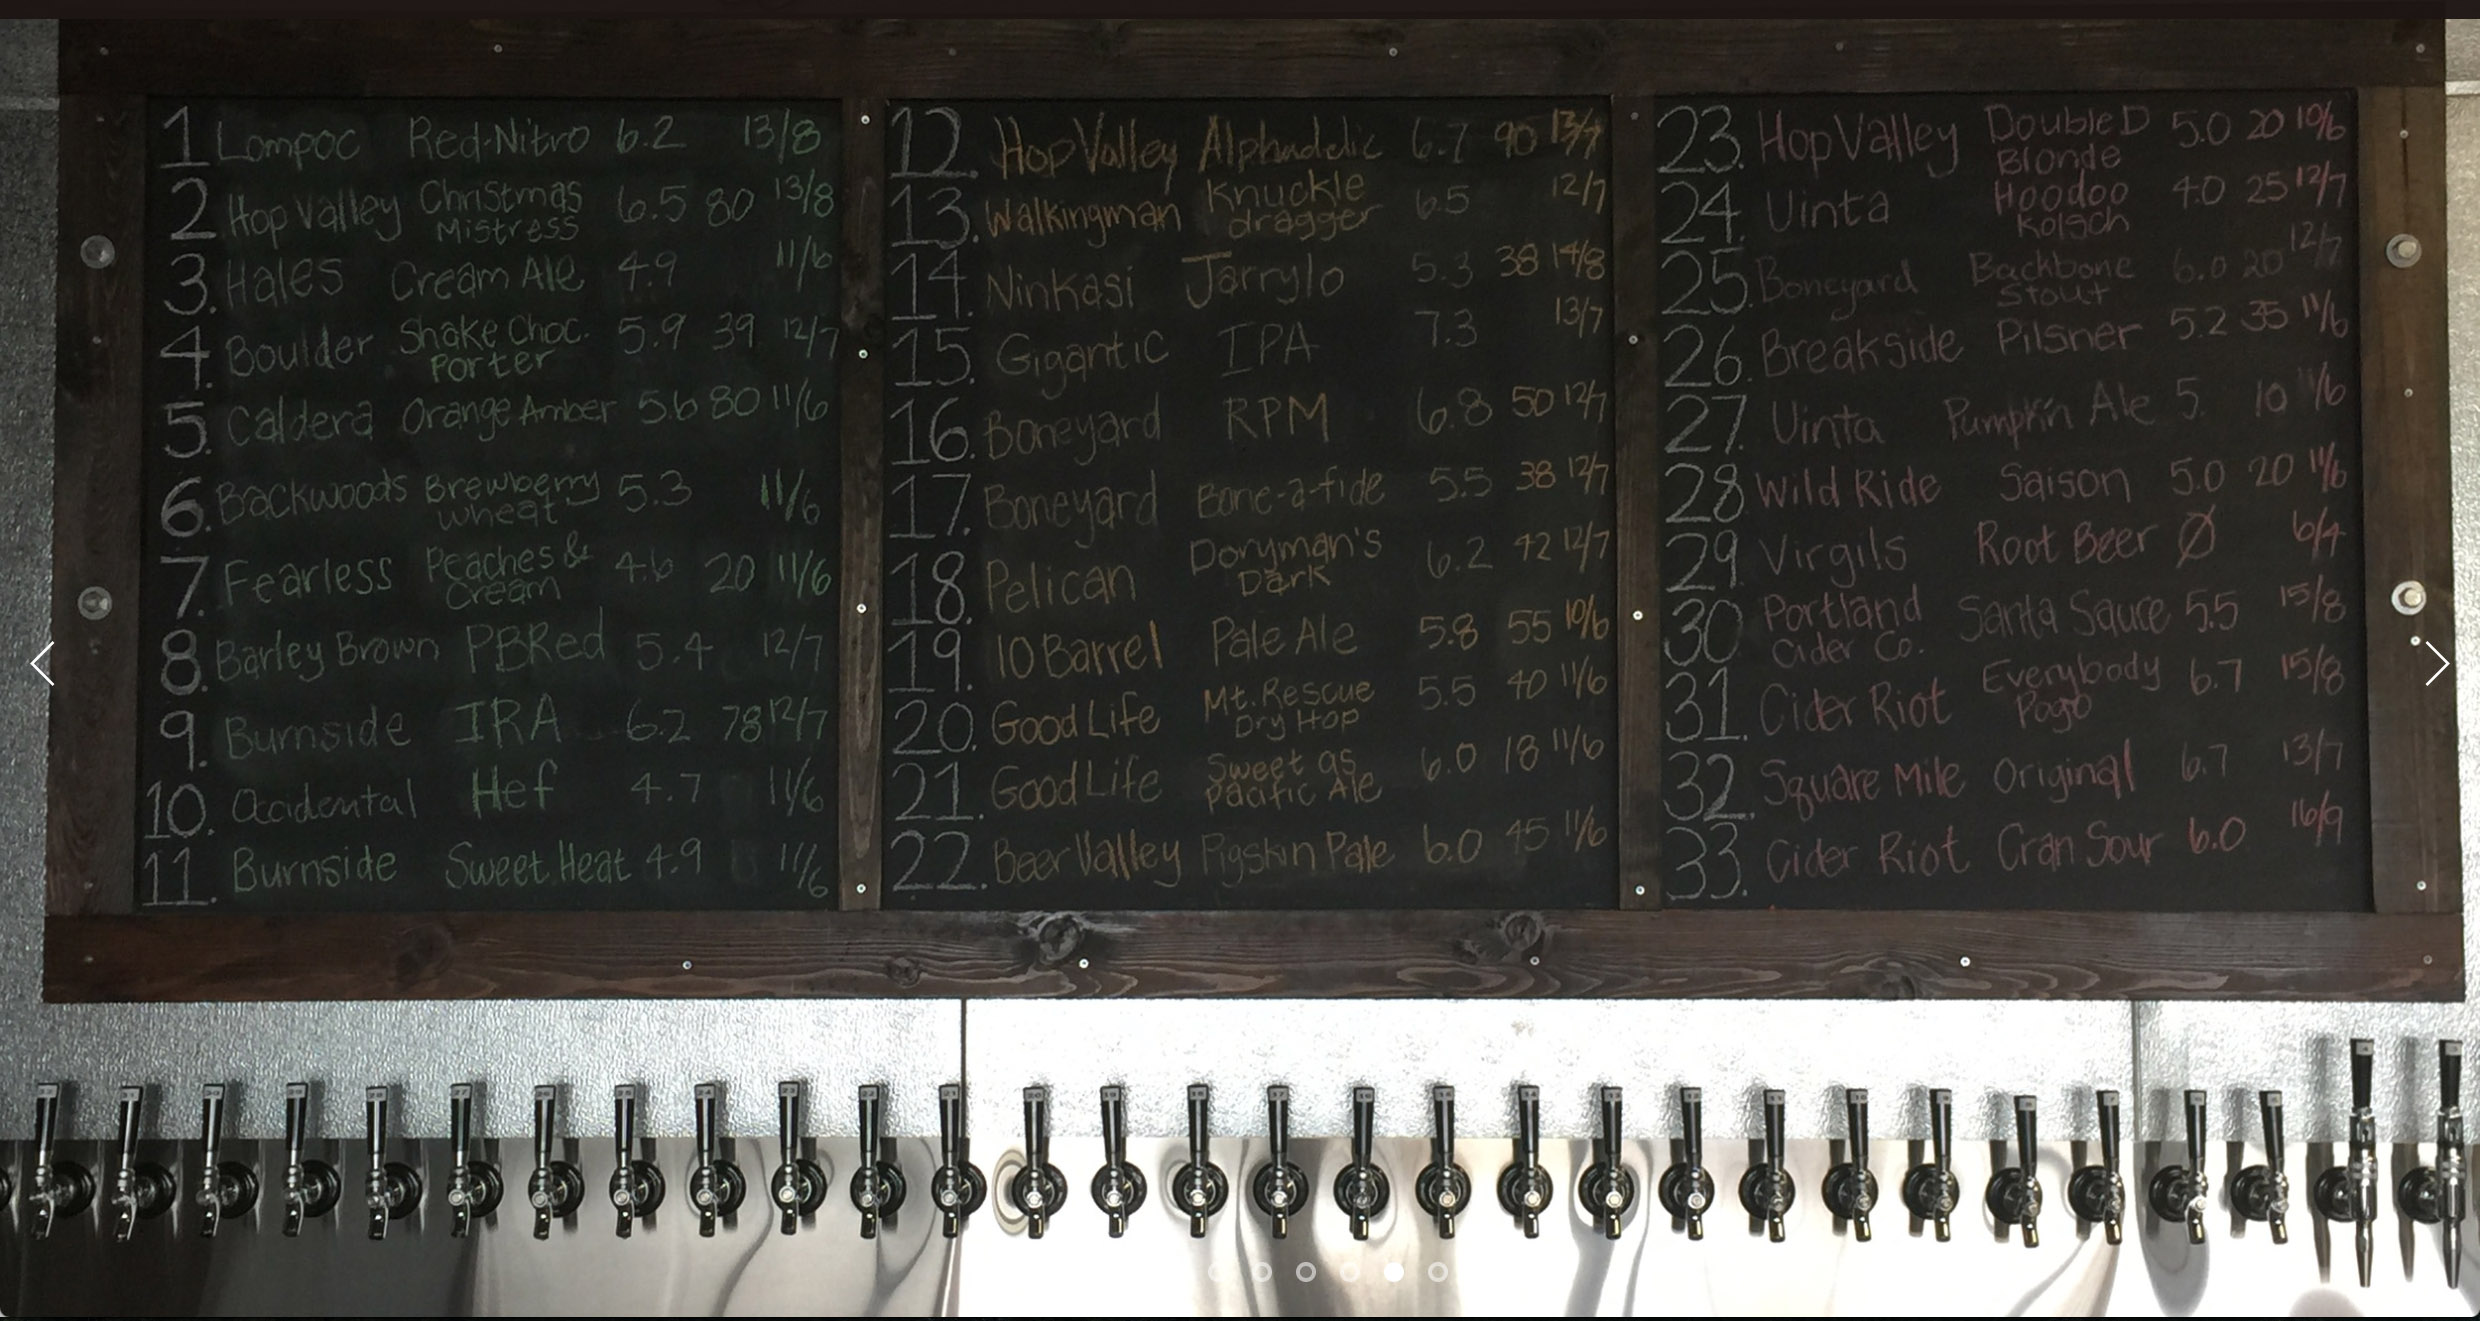 1 Lompoc Red-Nitro 6.2 13/8
2 Hop Valley Christmas Mistress 6.5 80 13/8
3. Hales Cream Ale 4.9 11/6
4. Boulder Shake Choc. Porter 5.9 39 12/7
5. Caldera Orange Amber 5.6 80 11/6
6. Backwoods Brewberry wheat 5.3 11/6
7. Fearless Peaches & Cream 4.6 20 11/6
8. Barley Brown PBRed 5.4 12/7
9. Burnside IRA 6.2 78 12/7
10. Occidental Hef 4.7 11/6
11. Burnside Sweet Heat 4.9 11/6
12. Hop Valley Alphadelic 6.7 90 13/7
13. Walkingman Knuckle dragger 6.5 12/7
14. Ninkasi Jarrylo 5.3 38 14/8
15. Gigantic IPA 7.3 13/7
16. Boneyard RPM 6.8 50 12/7
17. Boneyard Bone-a-fide 5.5 38 12/7
18. Pelican Doryman's Dark 6.2 42 12/7
19. 10 Barrel Pale Ale 5.8 55 10/6
20. Good Life Mt. Rescue Dry Hop 5.5 40 11/6
21. Good Life Sweet as Pacific Ale 6.0 18 11/6
22. Beer Valley Pigskin Pale 6.0 45 11/6
23. Hop Valley Double D Blonde 5.0 20 10/6
24. Uinta Hoodoo Kolsch 4.0 25 12/7
25. Boneyard Backbone Stout 6.0 20 12/7
26. Breakside Pilsner 5.2 35 11/6
27. Uinta Pumpkin Ale 5. 10 11/6
28 Wild Ride Saison 5.0 20 11/6
29. Virgils Root Beer Ø 6/4
30 Portland Cider Co. Santa Sauce 5.5 15/8
31. Cider Riot Everybody Pogo 6.7 15/8
32. Square Mile Original 6.7 13/7
33. Cider Riot Cran Sour 6.0 16/9